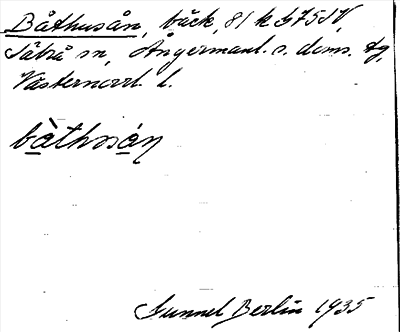 Båthusån, bäck, 81 k G 7517,
Sätrå sn, Ångermanl. s. doms. tg,
Västernorrl. l.
båthusån
Gunnel Berlin 1935